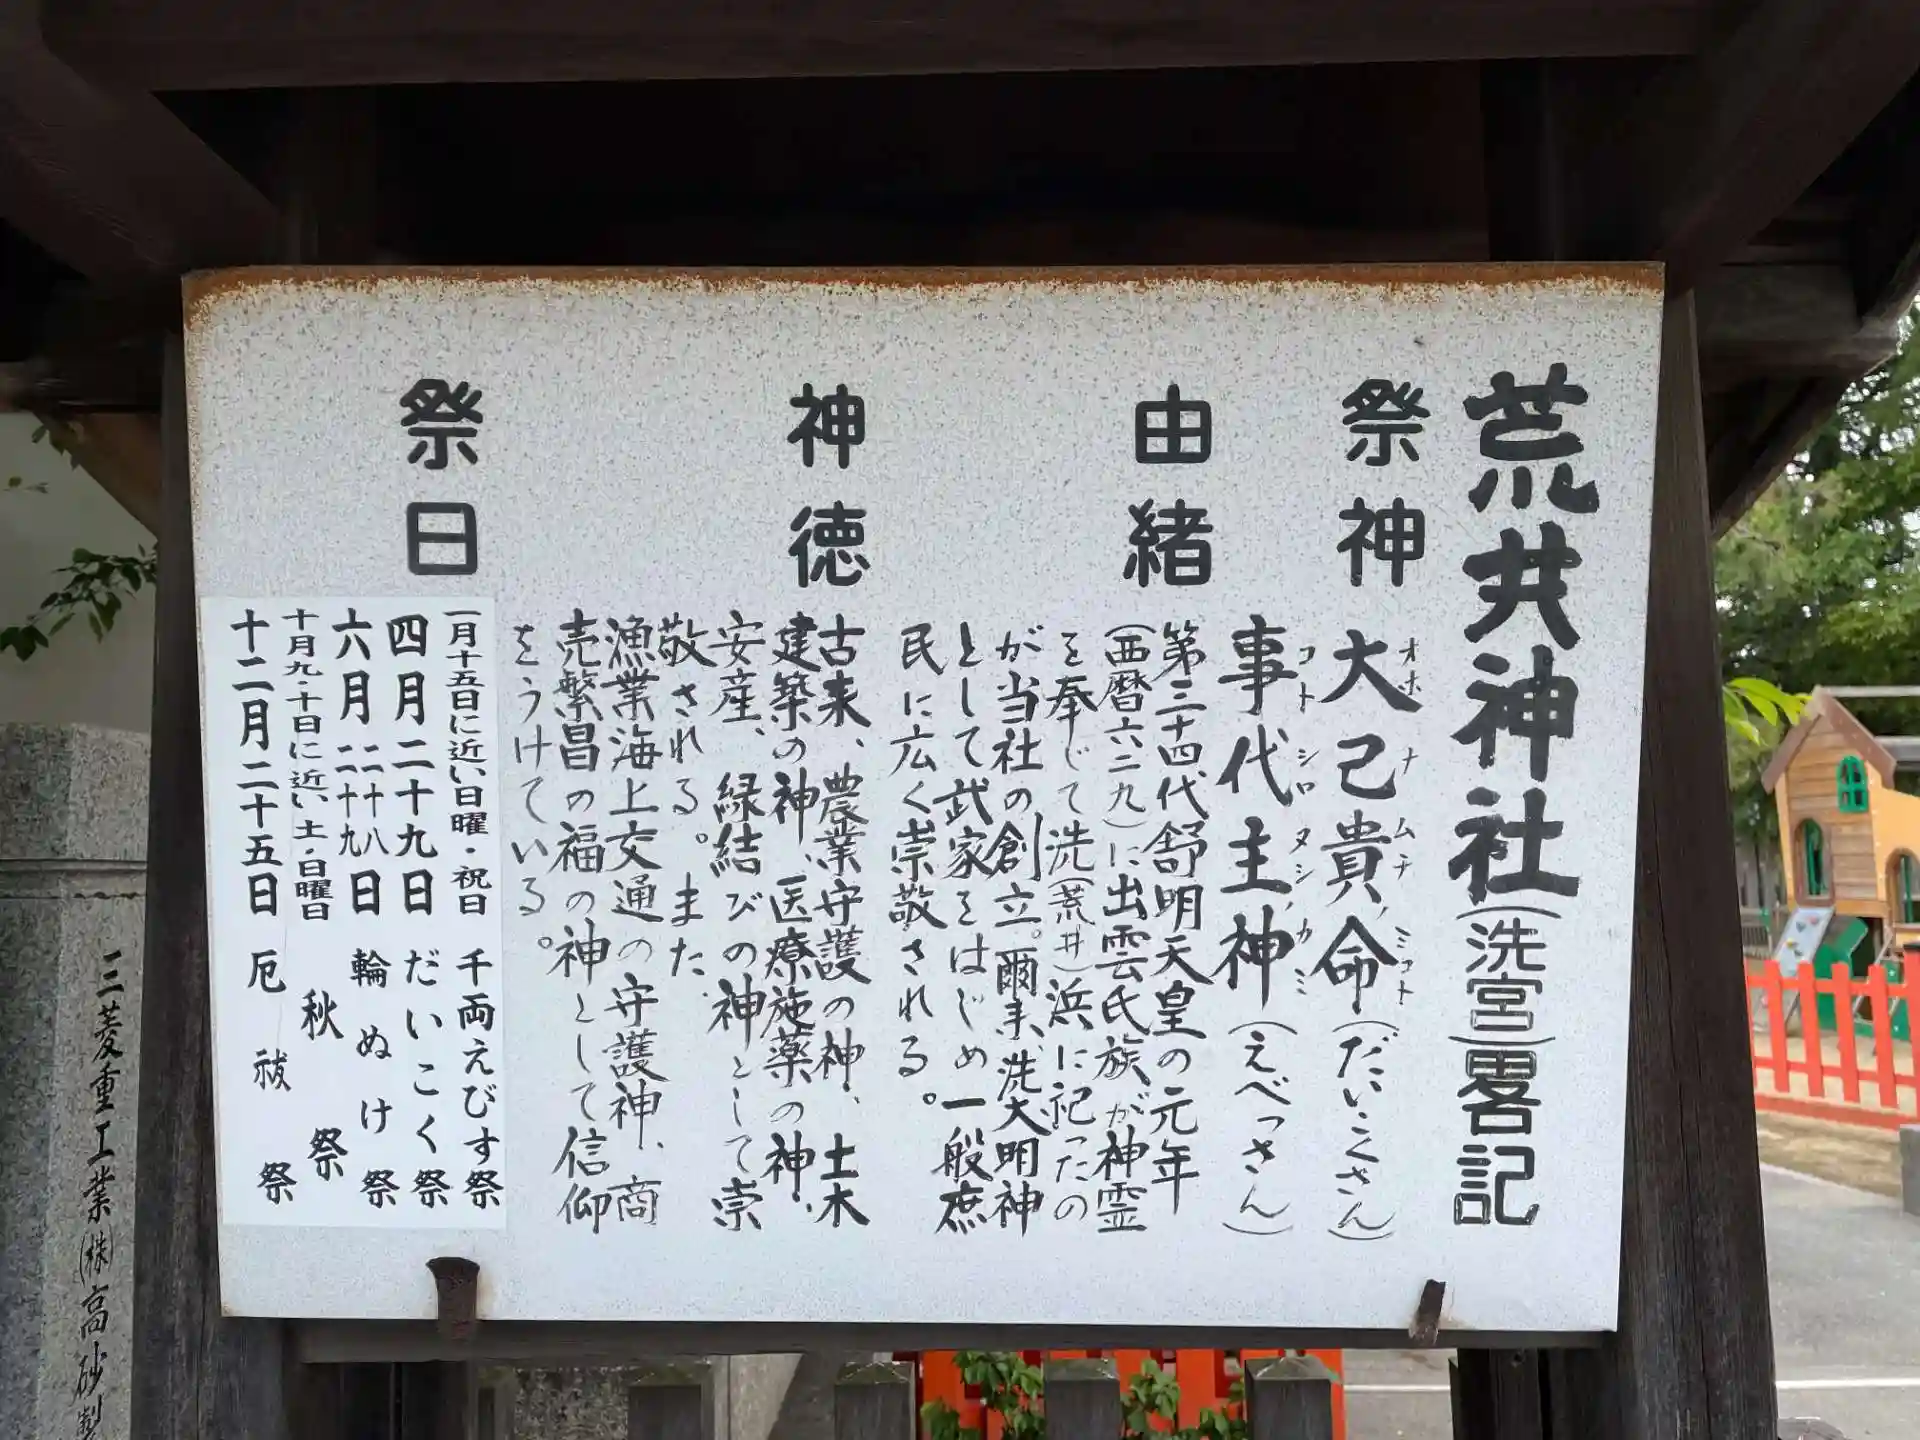 荒井神社(洗宮)畧記
祭神
大己貴命(だいこくさん)
オホ ナ ムチ ノ ミコト
事代主神(えべっさん)
コト シロ ヌシ ノ カミ
由緒
第三十四代舒明天皇の元年
(西暦六二九)に出雲氏族が神霊
を奉じて洗(荒井)浜に祀ったの
が当社の創立。爾来、洗大明神
として武家をはじめ一般庶
民に広く崇敬される。
神徳
古来、農業守護の神、土木
建築の神、医療施薬の神、
安産、縁結びの神として崇
敬される。また、
漁業海上交通の守護神、商
売繁昌の福の神として信仰
をうけている。
祭日
一月十五日に近い日曜・祝日 千両えびす祭
四月二十九日 だいこく祭
六月二十八日 二十九 輪ぬけ祭
十月九・十日に近い土・日曜日 秋祭
十二月二十五日 厄祓祭
三菱重工業(株)高砂製